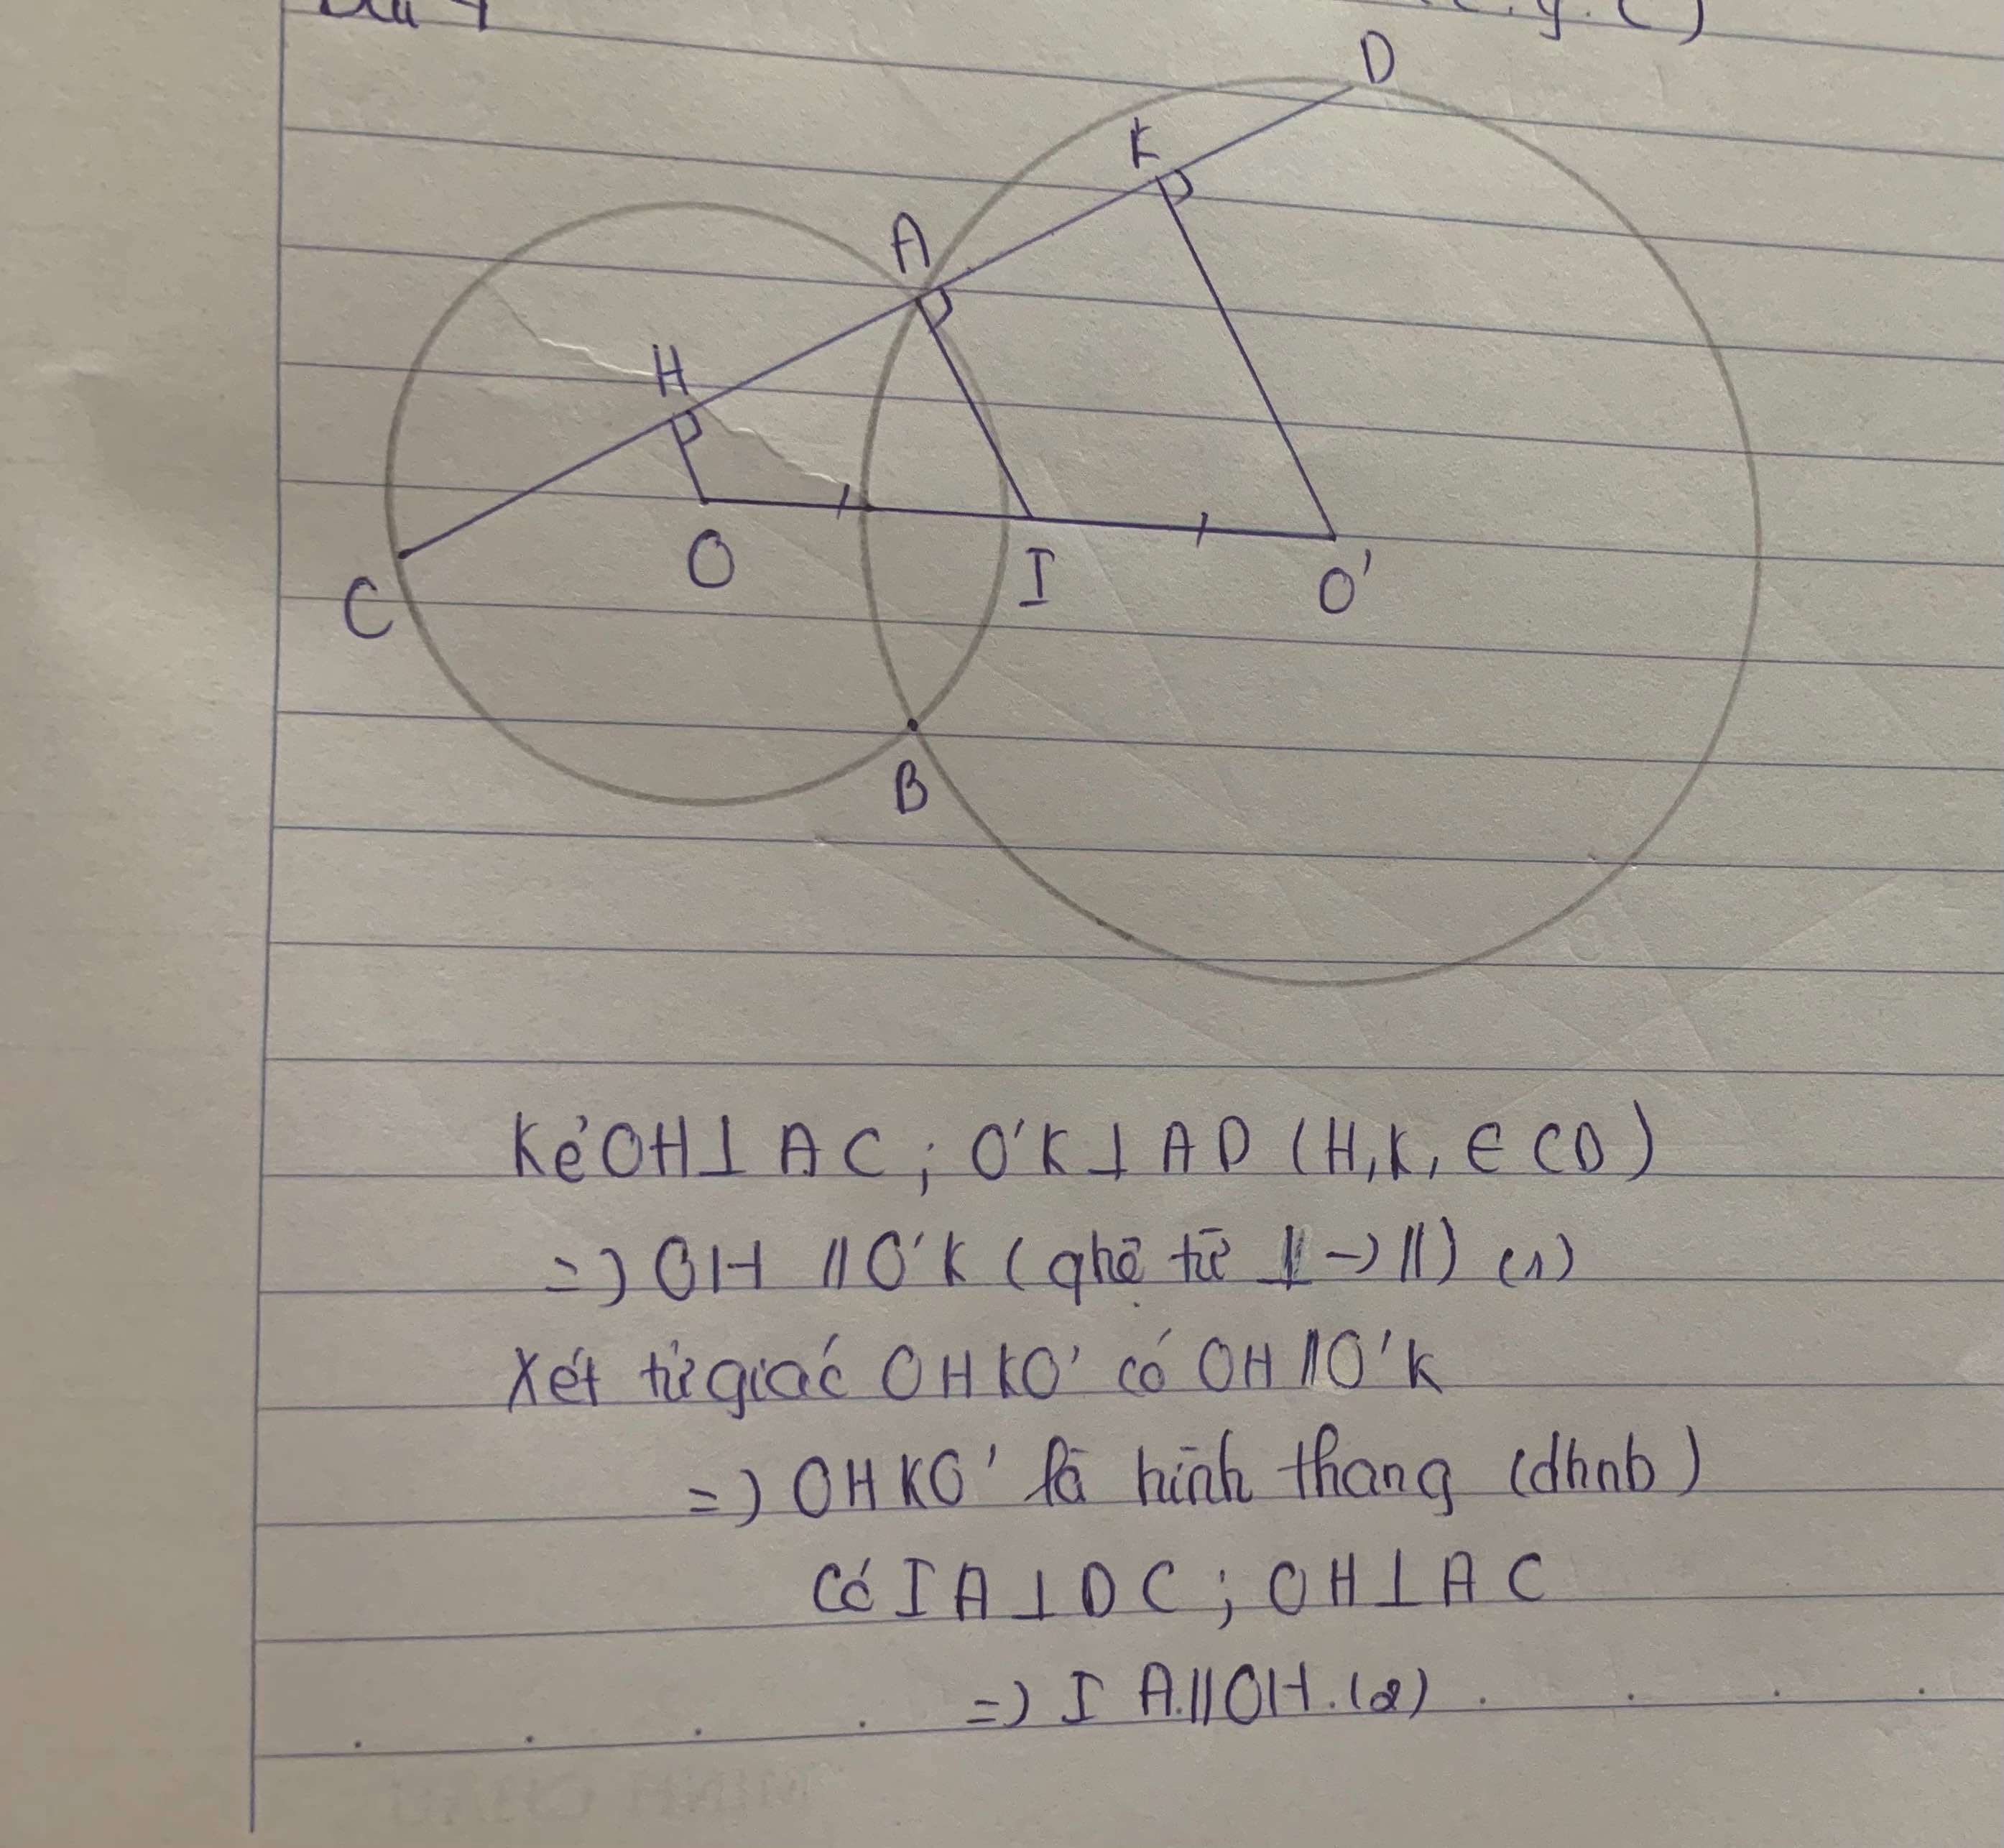 D
K
A
H
C
O
I
O'
B
Kẻ OH⊥AC; O'K⊥AD (H,K, ∈ CD)
=) OH // O'K ( qhệ từ ⊥ -> //) (1)
Xét tứ giác OHKO' có OH // O'K
=) OHKO' là hình thang (dhnb)
Có IA⊥DC; OH⊥AC
=) IA // OH. (2)